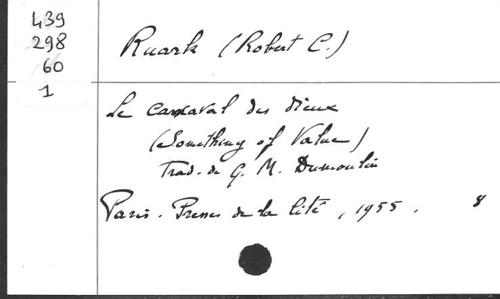 439
298
60
1
Ruark (Robert C.)
Le carnaval des dieux
(Something of Value)
Trad. de G. M. Dumoulin
Paris. Presses de la Cité, 1955. 8